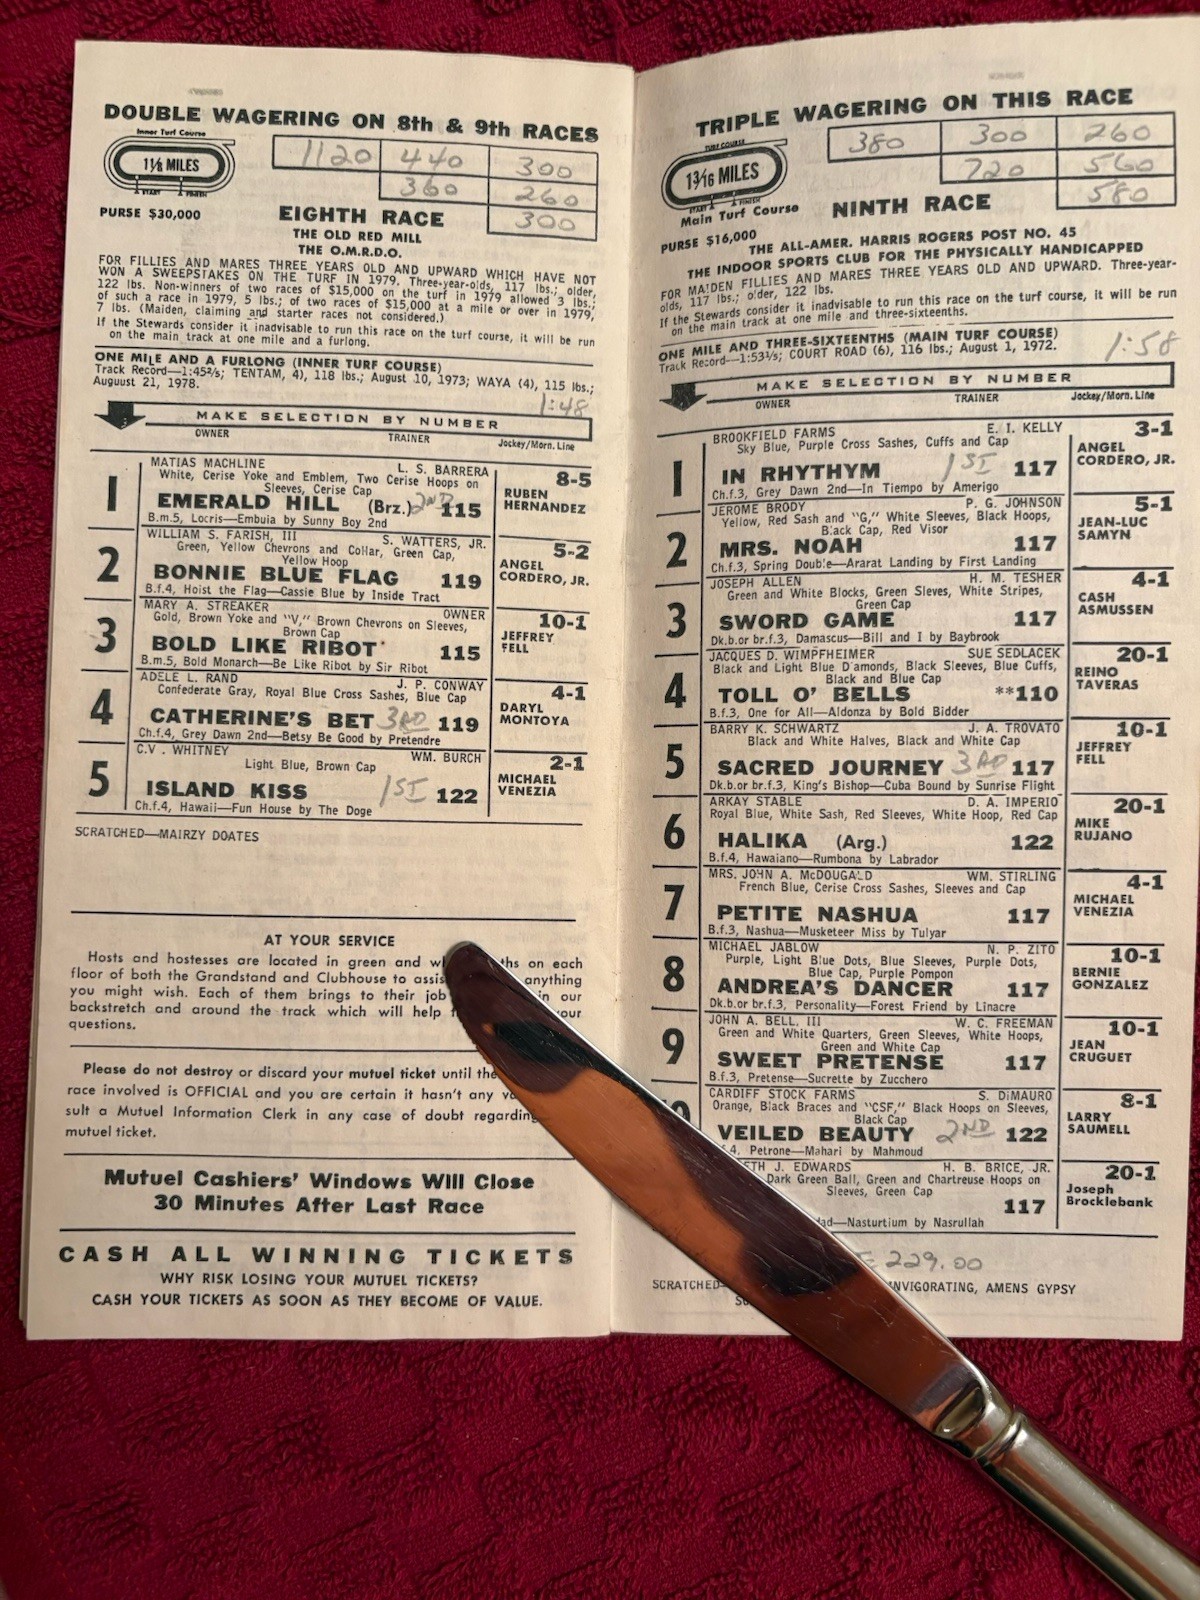 DOUBLE WAGERING ON 8th & 9th RACES
Inner Turf Course
1⅛ MILES
START FINISH
1120 440 300
360 260
300
PURSE $30,000
EIGHTH RACE
THE OLD RED MILL
THE O.M.R.D.O.
FOR FILLIES AND MARES THREE YEARS OLD AND UPWARD WHICH HAVE NOT
WON A SWEEPSTAKES ON THE TURF IN 1979. Three-year-olds, 117 lbs.; older,
122 lbs. Non-winners of two races of $15,000 on the turf in 1979 allowed 3 lbs.;
of such a race in 1979, 5 lbs.; of two races of $15,000 at a mile or over in 1979,
7 lbs. (Maiden, claiming and starter races not considered.)
If the Stewards consider it inadvisable to run this race on the turf course, it will be run
on the main track at one mile and a furlong.
ONE MILE AND A FURLONG (INNER TURF COURSE)
Track Record—1:45⅖; TENTAM, 4), 118 lbs.; August 10, 1973; WAYA (4), 115 lbs.;
Auguust 21, 1978.
1:48
MAKE SELECTION BY NUMBER
OWNER TRAINER Jockey/Morn. Line
MATIAS MACHLINE L. S. BARRERA 8-5
White, Cerise Yoke and Emblem, Two Cerise Hoops on
Sleeves, Cerise Cap
1 EMERALD HILL (Brz.) 2ND 115 RUBEN HERNANDEZ
B.m.5, Locris—Embuia by Sunny Boy 2nd
WILLIAM S. FARISH, III S. WATTERS, JR. 5-2
Green, Yellow Chevrons and Collar, Green Cap,
Yellow Hoop
2 BONNIE BLUE FLAG 119 ANGEL CORDERO, JR.
B.f.4, Hoist the Flag—Cassie Blue by Inside Tract
MARY A. STREAKER OWNER 10-1
Gold, Brown Yoke and "V," Brown Chevrons on Sleeves,
Brown Cap
3 BOLD LIKE RIBOT 115 JEFFREY FELL
B.m.5, Bold Monarch—Be Like Ribot by Sir Ribot
ADELE L. RAND J. P. CONWAY 4-1
Confederate Gray, Royal Blue Cross Sashes, Blue Cap
4 CATHERINE'S BET 3RD 119 DARYL MONTOYA
Ch.f.4, Grey Dawn 2nd—Betsy Be Good by Pretendre
C.V. WHITNEY WM. BURCH 2-1
Light Blue, Brown Cap
5 ISLAND KISS 1ST 122 MICHAEL VENEZIA
Ch.f.4, Hawaii—Fun House by The Doge
SCRATCHED—MAIRZY DOATES
AT YOUR SERVICE
Hosts and hostesses are located in green and on each
floor of both the Grandstand and Clubhouse to anything
you might wish. Each of them brings to their job in our
backstretch and around the track which will help
questions.
Please do not destroy or discard your mutuel ticket until the
race involved is OFFICIAL and you are certain it hasn't any
sult a Mutuel Information Clerk in any case of doubt
mutuel ticket.
Mutuel Cashiers' Windows Will Close
30 Minutes After Last Race
CASH ALL WINNING TICKETS
WHY RISK LOSING YOUR MUTUEL TICKETS?
CASH YOUR TICKETS AS SOON AS THEY BECOME OF VALUE.
TRIPLE WAGERING ON THIS RACE
TURF COURSE
1 3/16 MILES
START FINISH
Main Turf Course
380 300 260
720 560
580
NINTH RACE
PURSE $16,000
THE ALL-AMER. HARRIS ROGERS POST NO. 45
THE INDOOR SPORTS CLUB FOR THE PHYSICALLY HANDICAPPED
FOR MAIDEN FILLIES AND MARES THREE YEARS OLD AND UPWARD. Three-year-
olds, 117 lbs.; older, 122 lbs.
If the Stewards consider it inadvisable to run this race on the turf course, it will be run
on the main track at one mile and three-sixteenths.
ONE MILE AND THREE-SIXTEENTHS (MAIN TURF COURSE)
Track Record—1:53⅕; COURT ROAD (6), 116 lbs.; August 1, 1972.
1:58
MAKE SELECTION BY NUMBER
OWNER TRAINER Jockey/Morn. Line
BROOKFIELD FARMS E. I. KELLY 3-1
Sky Blue, Purple Cross Sashes, Cuffs and Cap
1 IN RHYTHYM 1ST 117 ANGEL CORDERO, JR.
Ch.f.3, Grey Dawn 2nd—In Tiempo by Amerigo
JEROME BRODY P. G. JOHNSON 5-1
Yellow, Red Sash and "G," White Sleeves, Black Hoops,
Black Cap, Red Visor
2 MRS. NOAH 117 JEAN-LUC SAMYN
Ch.f.3, Spring Double—Ararat Landing by First Landing
JOSEPH ALLEN H. M. TESHER 4-1
Green and White Blocks, Green Sleves, White Stripes,
Green Cap
3 SWORD GAME 117 CASH ASMUSSEN
Dk.b.or br.f.3, Damascus—Bill and I by Baybrook
JACQUES D. WIMPFHEIMER SUE SEDLACEK 20-1
Black and Light Blue Diamonds, Black Sleeves, Blue Cuffs,
Black and Blue Cap
4 TOLL O' BELLS **110 REINO TAVERAS
B.f.3, One for All—Aldonza by Bold Bidder
BARRY K. SCHWARTZ J. A. TROVATO 10-1
Black and White Halves, Black and White Cap
5 SACRED JOURNEY 3RD 117 JEFFREY FELL
Dk.b.or br.f.3, King's Bishop—Cuba Bound by Sunrise Flight
ARKAY STABLE D. A. IMPERIO 20-1
Royal Blue, White Sash, Red Sleeves, White Hoop, Red Cap
6 HALIKA (Arg.) 122 MIKE RUJANO
B.f.4, Hawaiano—Rumbona by Labrador
MRS. JOHN A. McDOUGALD WM. STIRLING 4-1
French Blue, Cerise Cross Sashes, Sleeves and Cap
7 PETITE NASHUA 117 MICHAEL VENEZIA
B.f.3, Nashua—Musketeer Miss by Tulyar
MICHAEL JABLOW N. P. ZITO 10-1
Purple, Light Blue Dots, Blue Sleeves, Purple Dots,
Blue Cap, Purple Pompon
8 ANDREA'S DANCER 117 BERNIE GONZALEZ
Dk.b.or br.f.3, Personality—Forest Friend by Linacre
JOHN A. BELL, III W. C. FREEMAN 10-1
Green and White Quarters, Green Sleeves, White Hoops,
Green and White Cap
9 SWEET PRETENSE 117 JEAN CRUGUET
B.f.3, Pretense—Sucrette by Zucchero
CARDIFF STOCK FARMS S. DiMAURO 8-1
Orange, Black Braces and "CSF," Black Hoops on Sleeves,
Black Cap
VEILED BEAUTY 2ND 122 LARRY SAUMELL
Petrone—Mahari by Mahmoud
J. EDWARDS H. B. BRICE, JR. 20-1
Dark Green Ball, Green and Chartreuse Hoops on
Sleeves, Green Cap
117 Joseph Brocklebank
Nasturtium by Nasrullah
229.00
SCRATCHED INVIGORATING, AMENS GYPSY